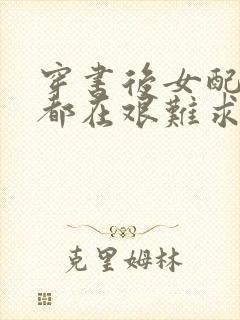 穿書後女配
都在艱難求
克里姆林